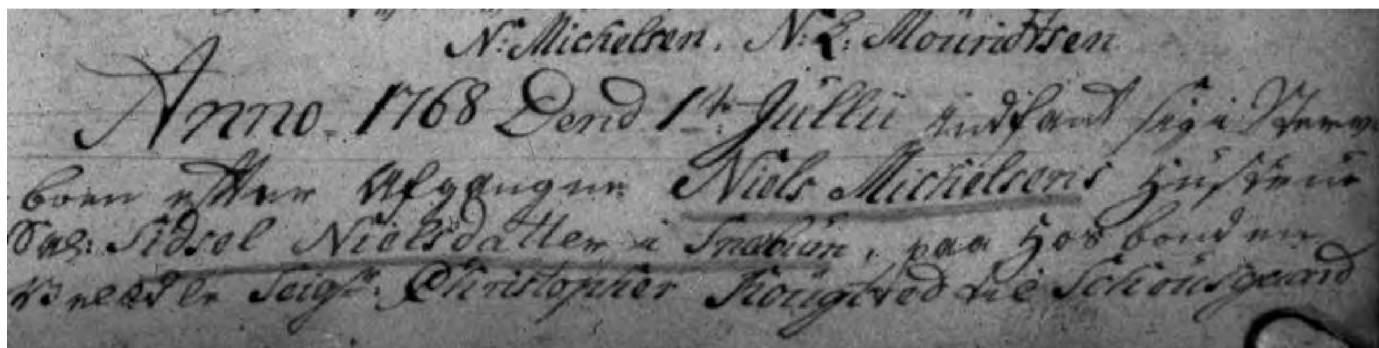 N: Michelsen. N: L: Mouridtsen
Anno. 1768 Dend 1te Jullii indfant sig i Sterv
boen efter Afgangne Niels Michelsens Hustrue
Sal: Sidsel Nielsdatter i Snæbum, paa Hosbonden
Seigr. Christopher Kougsted til Schousgaard